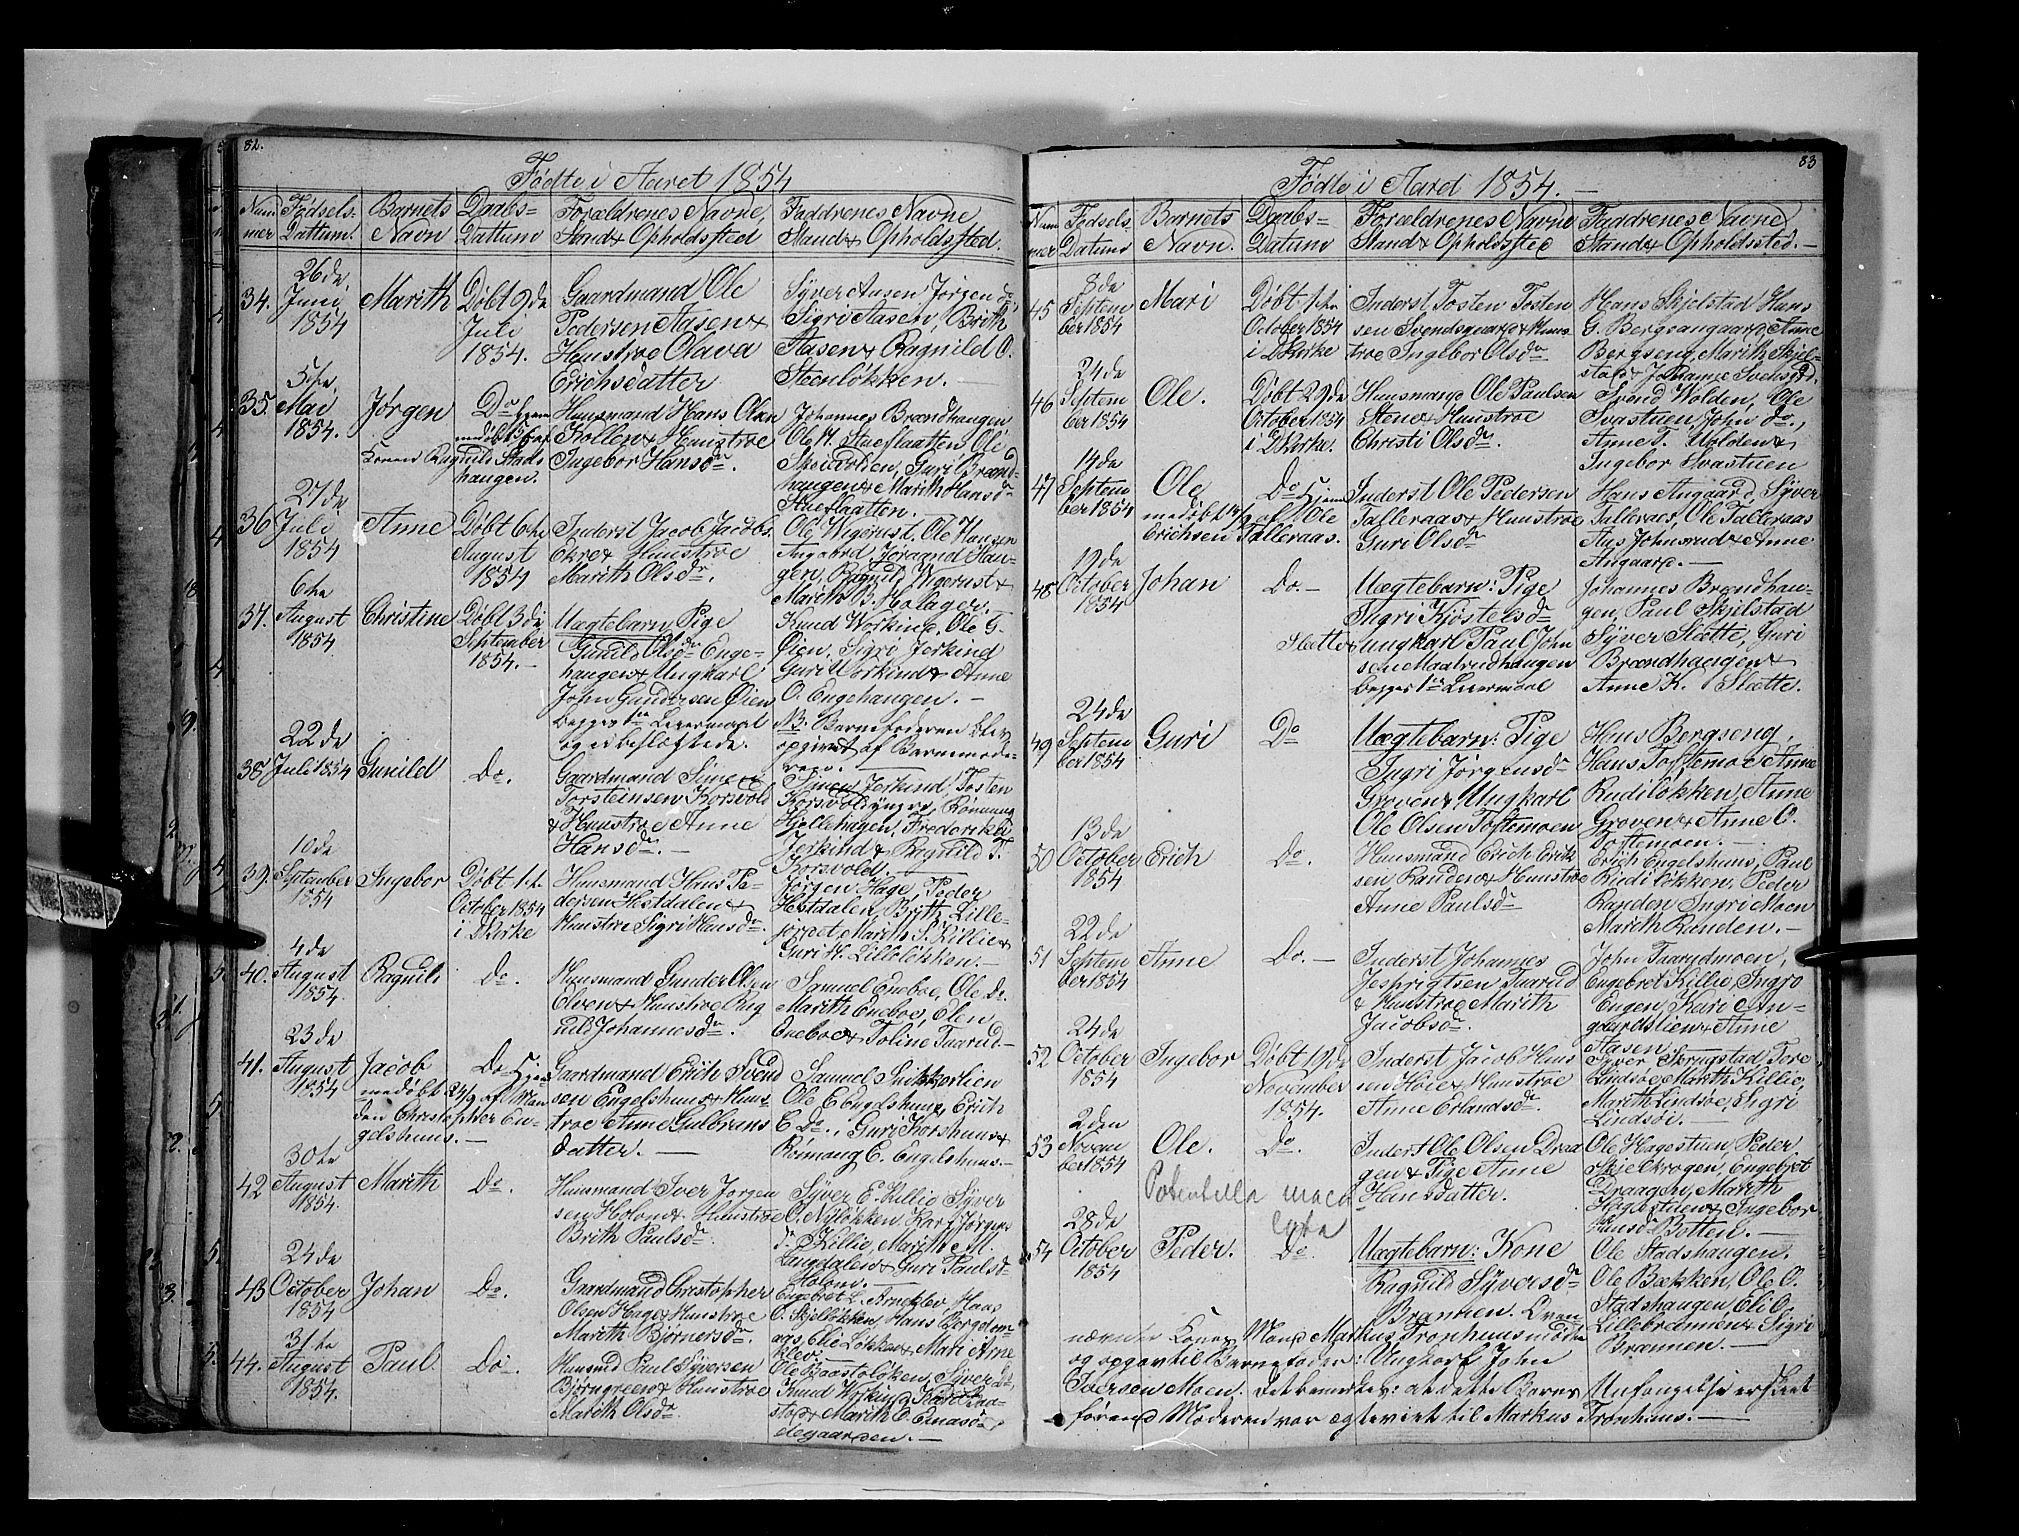 82.
Fødte i Aaret 1854
Num
mer
Fødsels
Dattum.
Barnets
Navn
Daabs=
Dattum
Forældrenes Navne,
Stand & Opholdssted
Faddrenes Navne
Stand & Opholdssted.
34.
26de
Juni
1854
Marith
Døbt 9de
Juli
1854.
Gaardmand Ole
Pedersen Aasen &
Hustroe Olava
Erichsdatter
Syver Aasen, Jørgen do
Sigri Aasen, Brith
Aasen & Ragnild O.
Steenløkken.
35.
5te
Mai
1854.
Jørgen
Do hjem
medøbt 15/5 af
Konend Ragnild Stads
haugen.
Huusmand Hans Olsen
Kollen & Hustroe
Ingebor Hansdr.
Johannes Brændhaugen
Ole H. Stueflaatten, Ole
Skeievolden, Guri Brænd-
haugen & Marith Hansdr
Stueflaatten.
36
27de
Juli
1854
Anne
Døbt 6te
August
1854
Inderst Jacob Jacobs.
Ekre & Hustroe
Marith Olsdr.
Ole Wigerust, Ole Hansen
Angaard, Jøragnd Hau-
gen, Ragnild Wigerust &
Marith B. Holager.
37.
6te
August
1854
Christine
Døbt 3de
September
1854.
Uægtebarn, Pige
Gunild Olsdr Enge-
haugen & Ungkarl
John Gundersen Øien
begges 1ste Leiermaal
og ei besloegtede.
Knud Workind, Ole G.
Øien, Sigri Jerkind
Guri Workind & Anne
O. Engehaugen.
NB. Barnefaderen blev
opgivet af Barnemode-
ren.
38.
22de
Juli 1854
Gunild
Do.
Gaardmand Simen
Torsteinsen Korsvold
& Hustroe Anne
Hansdr.
Simen Jerkind, Tosten
Korsvold yngre, Rønnaug
Hjellehagen, Frederikke
Jerkind & Ragnild T.
Korsvold.
39.
10de
September
1854
Ingebor
Døbt 1ste
October 1854
i DKirke
Huusmand Hans Pe-
dersen Hestdalen &
Hustroe Sigri Hansdr.
Jørgen Hage, Peder
Hestdalen, Brith Lille-
jordet, Marith S. Killie &
Guri H. Lilleløkken.
40.
4de
August
1854.
Ragnild
Do
Huusmand Gunder Olsen
Elven & Hustroe Rag
nild Johannesdr.
Samuel Eneboe, Ole Do.
Marith Eneboe, Elen
Eneboe & Toline Taarud
41.
23de
August
1854
Jacob
Do hjem
medøbt 24/9 af Man
den Christopher En-
gelshuus.
Gaardmand Erich Svend
sen Engelshuus & Hus-
troe Anne Gulbrans
datter.
Samuel Snitkorlien
Ole E. Engelshuus, Erich
E. Do., Guri Korshuus &
Rønnaug E. Engelshuus.
42
30te
August
1854.
Marith
Do.
Huusmand Iver Jørgen
sen Holen & Hustroe
Brith Paulsdr.
Syver E. Killie, Syver
O. Nyløkken, Kari Jørgens
dr Killie, Marith M.
Langdalen & Guri Paulsdr
Holen.
43
24de
October
1854
Johan
Do.
Gaardmand Christopher
Olsen Hage & Hustroe
Marith Bjørnersdr.
Engebret L. Arneklev, Hans
O. Skjelløkken, Hans Bergdem-
aas, Eli Løkken & Mari Arne
klev
44.
31te
August
1854.
Paul
Do
Huusmd Paul Syversen
Bjørngreen & Hustroe
Marith Olsdr.
Ole Baastoløkken, Syver do,
Knud Workind, Kari Baa-
stad & Marith O. Enaas
degaarden.
83
Fødte i Aaret 1854.
Num
mer
Fødsels
Datum
Barnets
Navn.
Daabs=
Datum
Forældrenes Navne
Stand & Opholdssted
Faddrenes Navne
Stand & Opholdssted.
45
8de
Septem
ber 1854
Mari
Døbt 1ste
October 1854
i DKirke
Inderst Tosten Tosten
sen Svendsgaard & Hus
troe Ingebor Olsdr
Hans Skjelstad, Hans
G. Bergvangaard, Anne
Bergseng, Marith Skjel-
stad & Johanne Svensgd.
46
24de
Septem
ber 1854
Ole.
Døbt 29de
October 1854
i DKirke.
Huusmand Ole Paulsen
Stene & Hustroe
Christi Olsdr.
Svend Wolden, Ole
Svastuen, John do.,
Anne T. Wolden &
Ingebor Svastuen
47
14de
Septem
ber 1854
Ole
Do hjem
medøbt 17/9 af Ole
Erichsen Talleraas.
Inderst Ole Pedersen
Talleraas & Hustroe
Guri Olsdr
Hans Angaard, Syver
Talleraas, Ole Talleraas
Aas Johnsrud & Anne
Angaard.
48
19de
October
1854
Johan
Do.
Uægtebarn: Pige
Ingri Kjøstelsdr
Slette & Ungkarl Paul John
sen Maalrudhaugen
begges 1ste Leiermaal
Johannes Brændhau-
gen, Paul Skjelstad
Syver Slette, Guri
Brændhaugen &
Anne K. Slette.
49
24de
Septem
ber 1854
Guri
Do
Uægtebarn: Pige
Ingri Jørgensdr
Groven & Ungkarl
Ole Olsen Toftemoen
Hans Bergseng,
Hans Toftemoe, Anne
Rudiløkken, Anne
Groven & Anne O.
Toftemoen.
50
13de
October
1854
Erich
Do.
Huusmand Erich Erik
sen Randen & Hustroe
Anne Paulsdr
Erich Engelshuus, Paul
Rudiløkken, Peder
Randen, Ingri Moen
Marith Randen.
51
22de
Septem
ber 1854
Anne
Do.
Inderst Johannes
Jesprigtsen Taarud
& Hustroe Marith
Jacobsdr.
John Taarudmoen,
Engebret Killie, Ingro
Eugen, Kari An-
gaardslien & Anne
Aasen.
52
24de
October
1854
Ingebor
Døbt 19de
November
1854.
Inderst Jacob Hans
sen Høie & Hustroe
Anne Erlandsdr.
Syver Skrugstad, Tore
Lindsøe, Marith Killie,
Marith Lindsøe, Ingri
Lindsøe.
53
2den
Novem
ber 1854
Ole.
Do.
Inderst Ole Olsen Draa
gen & Pige Anne
Hansdatter.
Ole Hagestuen, Peder
Skjeckrogen, Engebret
Draagen, Marith
Hagestuen & Ingebor
Hansdr Botten.
Potentilla maca
lata
54
28de
October
1854
Peder.
Do
Uægtebarn: Kone
Ragnild Syversdr
Brænnen. Oven
nævnte Kones Mand Markus Tronhuus er døde
og opgav til Barnefader: Ungkarl John
Iversen Moen. Det bemerkes: at dette Barns Unfangelse er skeet
førend Moderen var egteviet til Markus Tronhuus.
Ole Stadshaugen,
Ole Bækken, Ole O.
Stadshaugen, Eli O.
Lillebrænnen & Sigri
Brænnen.